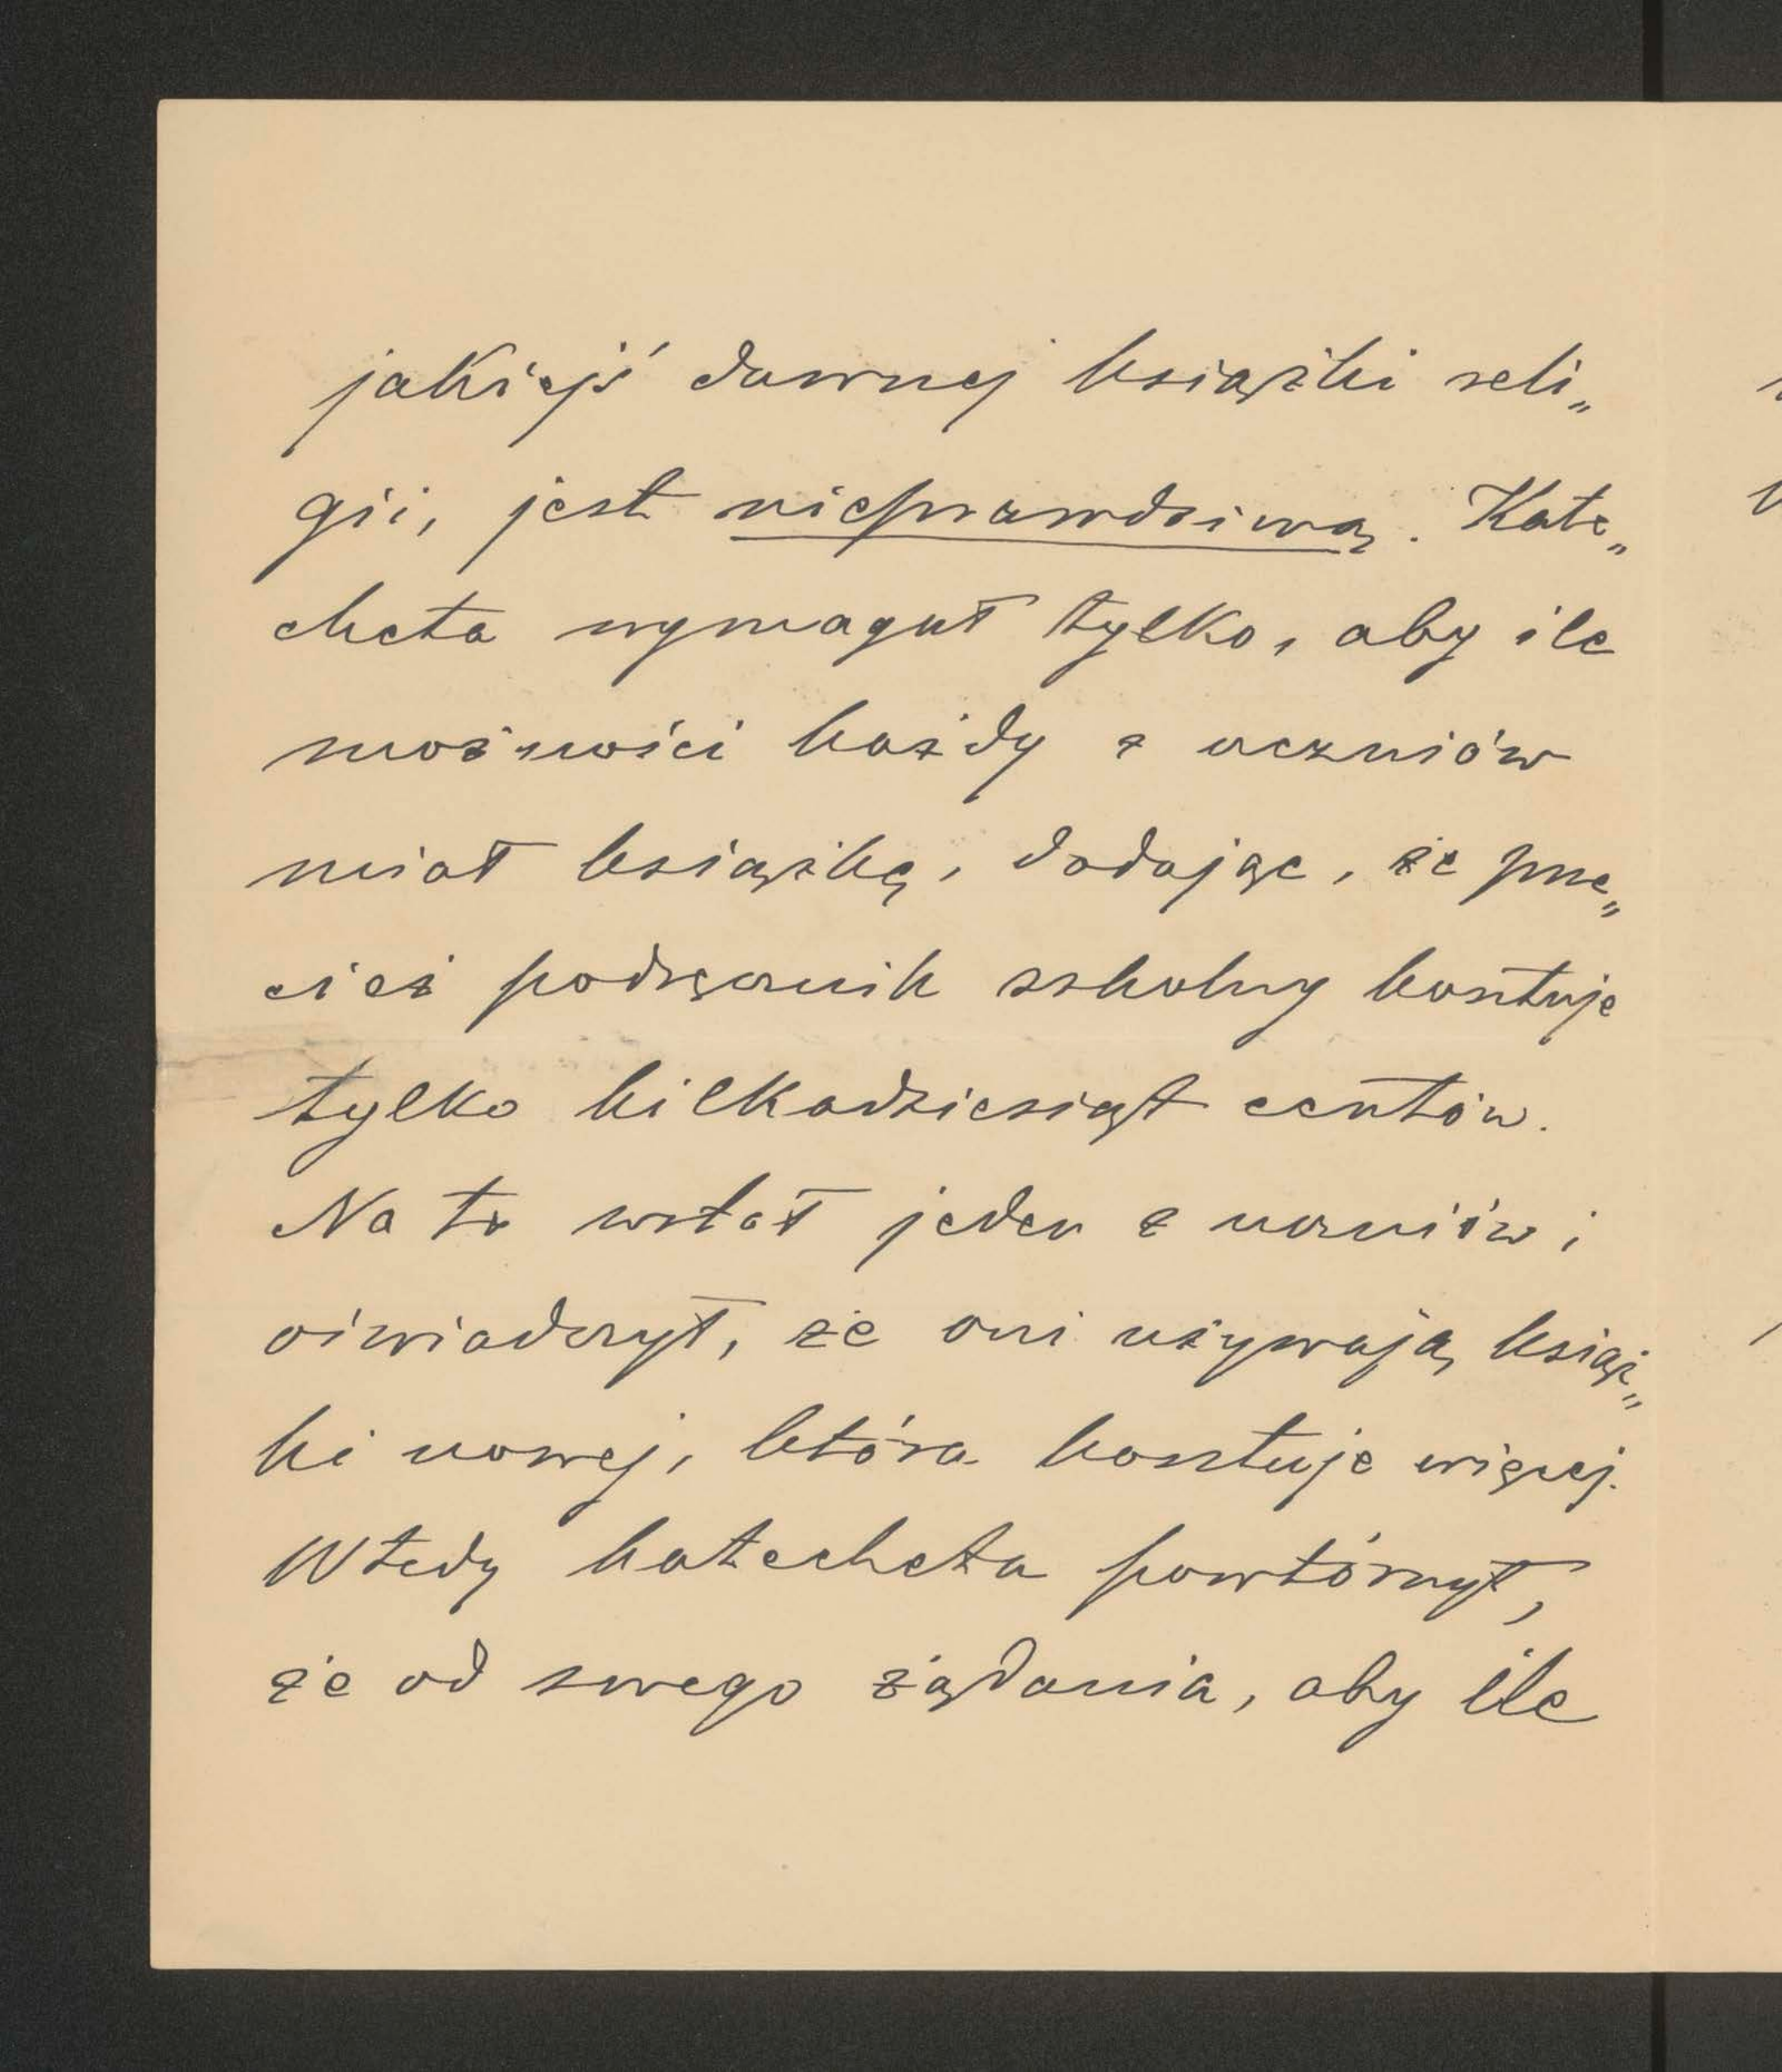 jakiejś dawnej książki reli„
gii, jest nieprawdziwą. Kate„
cheta wymagał tylko, aby ile
możności każdy z uczniów
miał książkę, dodając, że prze„
cież podręcznik szkolny kosztuje
tylko kilkadziesiąt centów.
Na to wstał jeden z uczniów i
oświadczył, że oni używają książ„
ki nowej, która kosztuje więcej.
Wtedy katecheta powtórzył,
że od swego żądania, aby ile